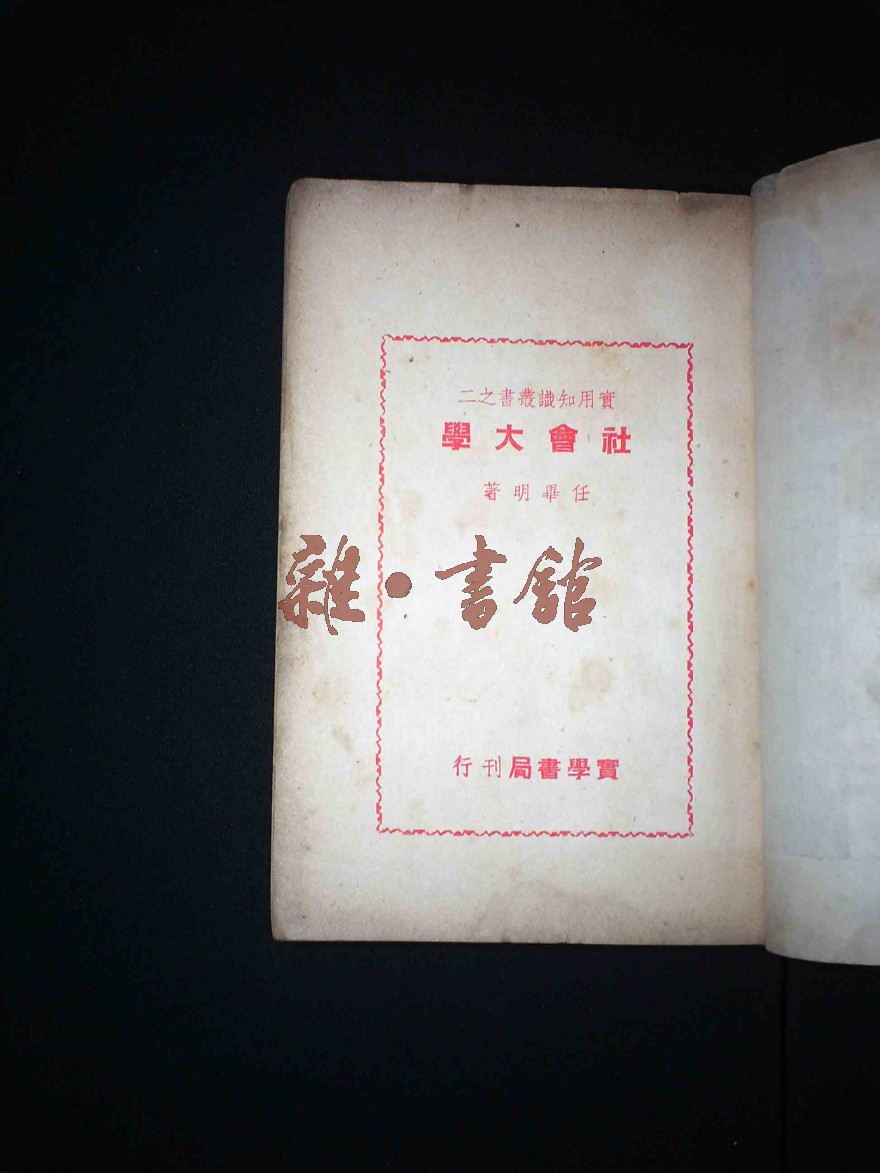 實用知識叢書之二
社會大學
任畢明著
雜·書館
實學書局刊行